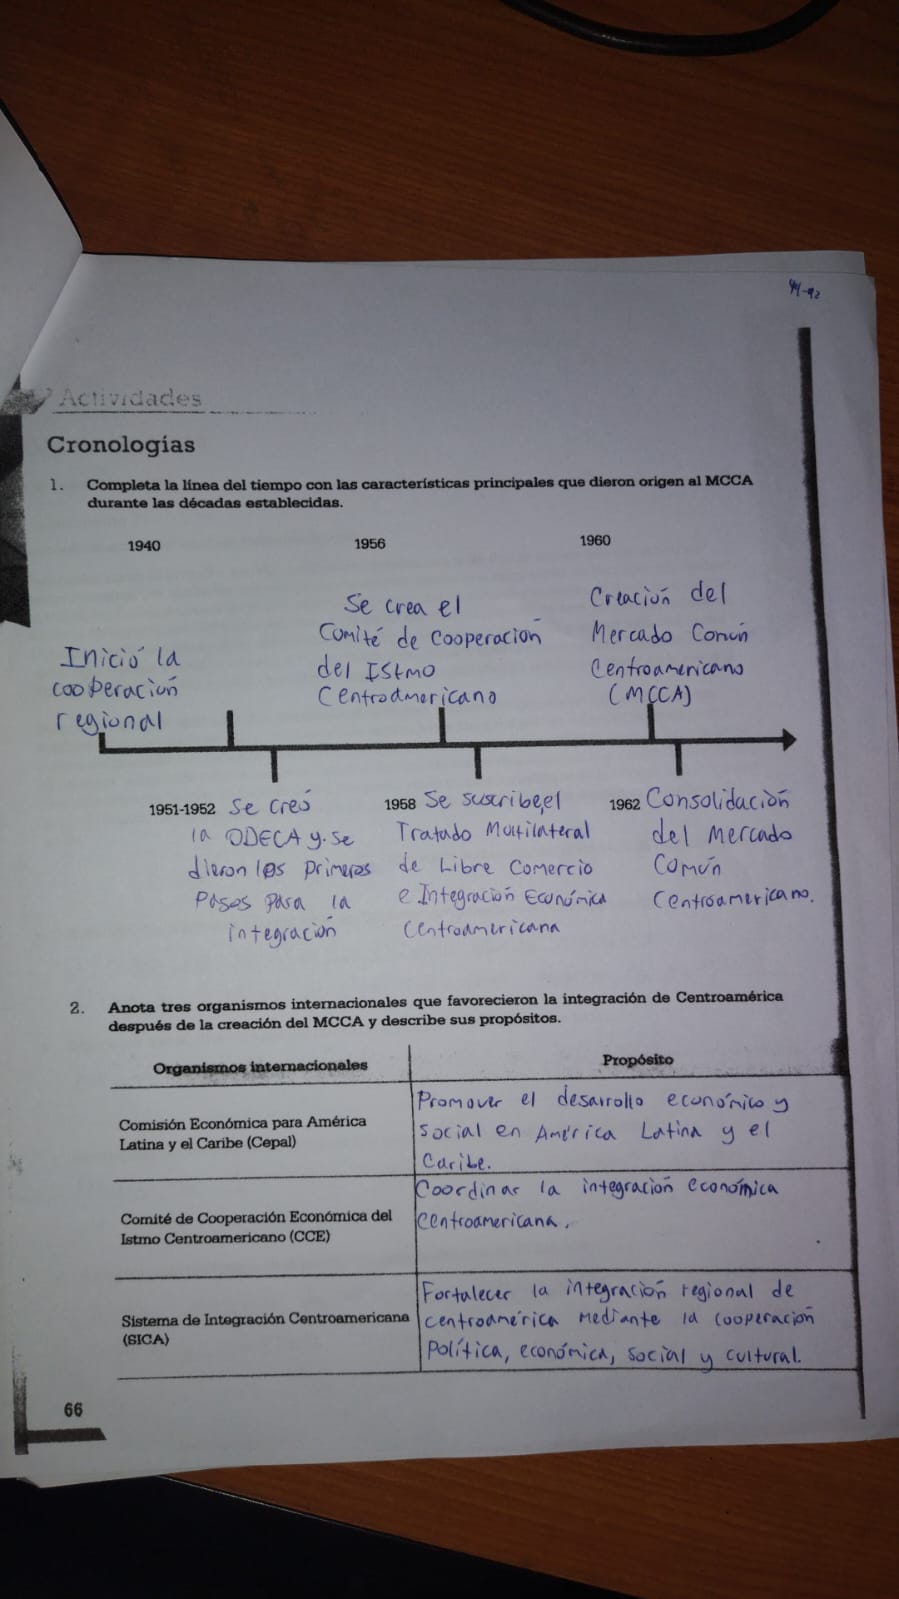 44-92
Actividades
Cronologías
1. Completa la línea del tiempo con las características principales que dieron origen al MCCA
durante las décadas establecidas.
1940
1956
1960
Inició la
cooperación
regional
Se crea el
Comité de Cooperación
del Istmo
Centroamericano
Creación del
Mercado Común
Centroamericano
(MCCA)
1951-1952 Se creó
la ODECA y se
dieron los primeros
Pasos para la
integración
1958 Se suscribe el
Tratado Multilateral
de Libre Comercio
e Integración Económica
Centroamericana
1962 Consolidación
del Mercado
Común
Centroamericano.
2. Anota tres organismos internacionales que favorecieron la integración de Centroamérica
después de la creación del MCCA y describe sus propósitos.
Organismos internacionales
Propósito
Comisión Económica para América
Latina y el Caribe (Cepal)
Promover el desarrollo económico y
social en América Latina y el
Caribe.
Comité de Cooperación Económica del
Istmo Centroamericano (CCE)
Coordinar la integración económica
centroamericana.
Sistema de Integración Centroamericana
(SICA)
Fortalecer la integración regional de
centroamérica mediante la cooperación
Política, económica, social y cultural.
66